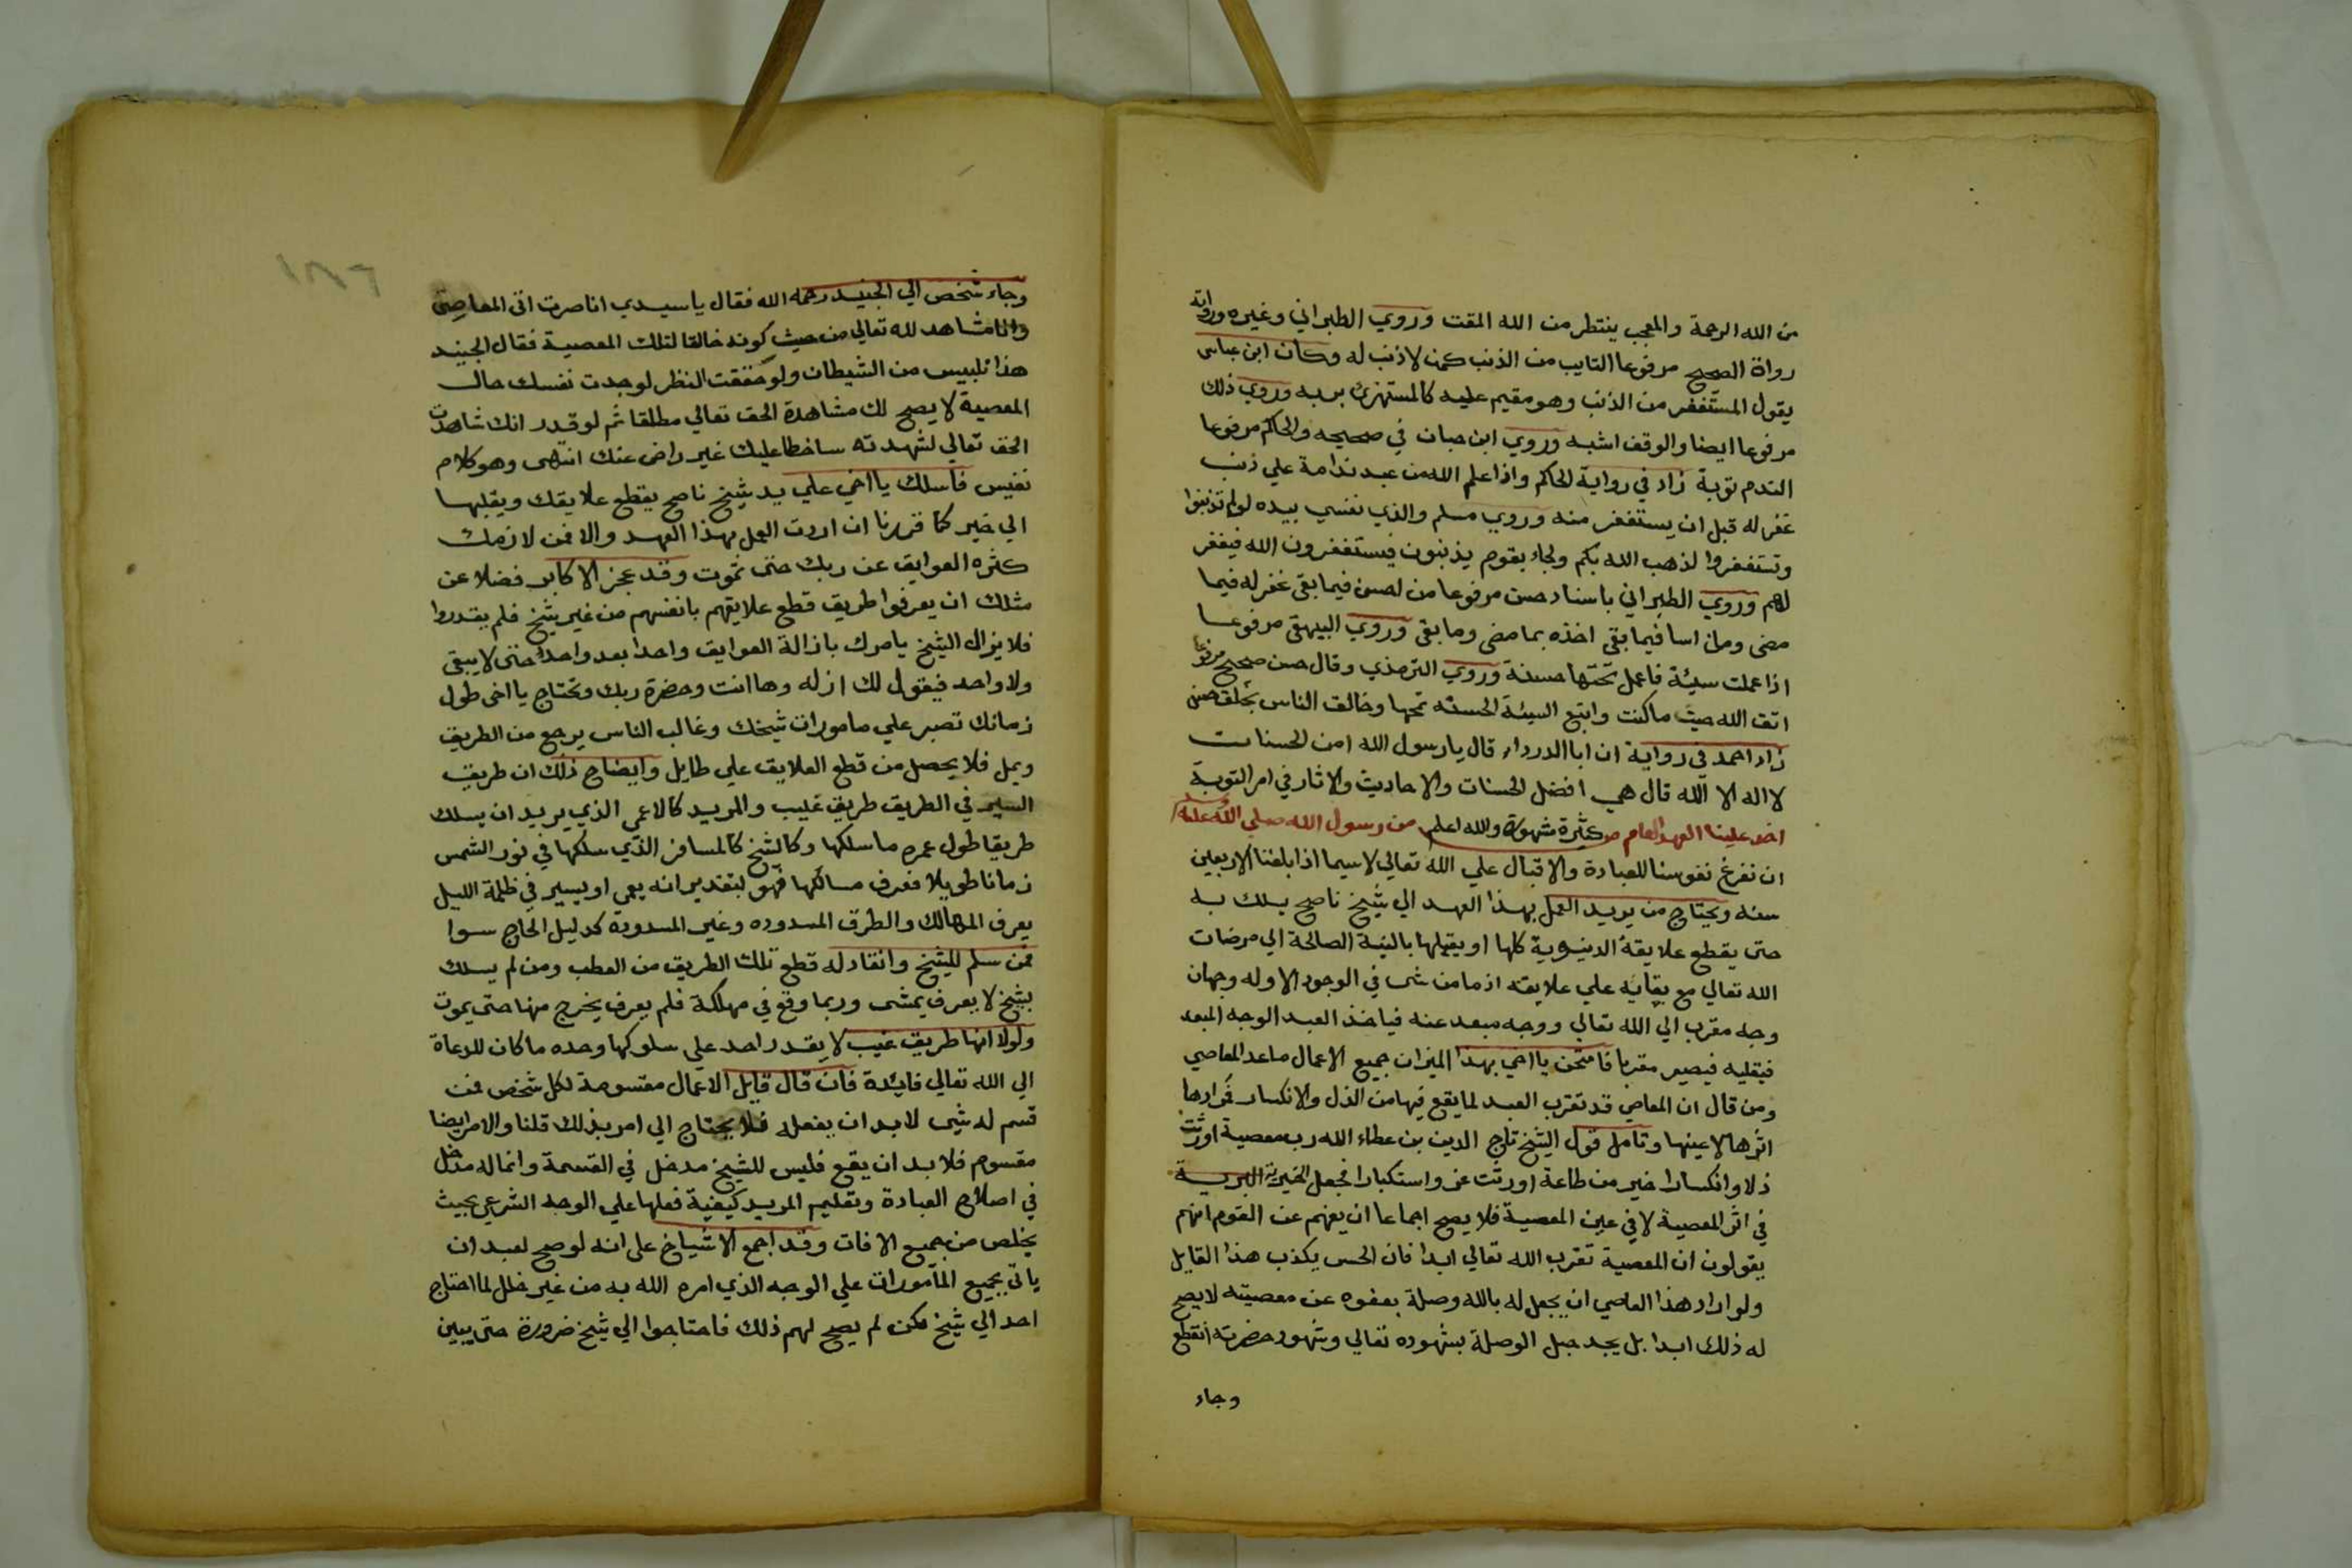 من الله الرحمة والمعجب ينتظر من الله المقت وروي الطبراني وغيره ورواته
رواة الصحيح مرفوعا التايب من الذنب كمن لا ذنب له وكان ابن عباس
يقول المستغفر من الذنب وهو مقيم عليه كالمستهزئ بربه وروي ذلك
مرفوعا ايضا والوقف اشبه وروي ابن حبان في صحيحه والحاكم مرفوعا
الندم توبة زاد في رواية الحاكم واذا علم الله من عبد ندامة علي ذنب
غفر له قبل ان يستغفر منه وروي مسلم والذي نفسي بيده لو لم تذنبوا
وتستغفروا لذهب الله بكم ولجاء بقوم يذنبون فيستغفرون الله فيغفر
لهم وروي الطبراني باسناد حسن مرفوعا من احسن فيما بقى غفر له فيما
مضى ومن اسا فيما بقي اخذه بما مضى وما بقى وروي البيهقى مرفوعا
اذا عملت سيئة فاعمل تحتها حسنة وروي الترمذي وقال حسن صحيح مرفوعا
اتق الله حيث ما كنت واتبع السيئة الحسنه تمحها وخالق الناس بخلق حسن
زاد احمد فى رواية ان ابا الدرداء قال يا رسول الله امن الحسنات
لا اله الا الله قال هي افضل الحسنات والاحاديث والاثار في امر التوبة
كثيرة مشهورة والله اعلم اخذ علينا العهد العام من رسول الله صلي الله عليه وسلم
ان نفرغ نفوسنا للعبادة والاقبال علي الله تعالي لاسيما اذا بلغنا الاربعين
سنه ويحتاج من يريد العمل بهذا العهد الي شيخ ناصح يسلك به
حتى يقطع علايقه الدنيوية كلها او يقبلها بالنية الصالحة الي مرضات
الله تعالي مع بقايه علي علايقه اذ ما من شى في الوجود الا وله وجهان
وجه مقرب الي الله تعالي ووجه مبعد عنه فياخذ العبد الوجه المبعد
فيقلبه فيصير مقربا فامتحن يا اخي بهذا الميزان جميع الاعمال ما عدا المعاصي
ومن قال ان المعاصي قد تقرب العبد لما يقع فيها من الذل والانكسار فمراده
اثرها لا عينها وتامل قول الشيخ تاج الدين بن عطاء الله رب معصية اورثت
ذلا وانكسارا خير من طاعة اورثت عز واستكبارا فجعل الخيرية
في اثر المعصية لا في عين المعصية فلا يصح اجماعا ان يفهم عن القوم انهم
يقولون ان المعصية تقرب الله تعالي ابدا فان الحس يكذب هذا القايل
ولو اراد هذا العاصي ان يجعل له بالله وصلة بعفوه عن معصيته لا يصح
له ذلك ابدا بل يجد حبل الوصلة بشهوده تعالي وشهود حضرته انقطع
وجاء
وجاء شخص الي الجنيد رحمه الله فقال يا سيدي انا صرت اتى المعاصى
وانا مشاهد لله تعالي من حيث كونه خالقا لتلك المعصية فقال الجنيد
هذا تلبيس من الشيطان ولو حققت النظر لوجدت نفسك حال
المعصية لا يصح لك مشاهدة الحق تعالي مطلقا ثم لو قدر انك شاهدت
الحق تعالي لشهدته ساخطا عليك غير راض عنك انتهى وهو كلام
نفيس فاسلك يا اخي علي يد شيخ ناصح يقطع علايقك ويقلبها
الي خير كما قررنا ان اردت العمل بهذا العهد والا فمن لازمك
كثره العوايق عن ربك حتى تموت وقد عجز الاكابر فضلا عن
مثلك ان يعرفوا طريق قطع علايقهم بانفسهم من غير شيخ فلم يقدروا
فلا يزال الشيخ يامرك بازالة العوايق واحدا بعد واحد حتى لا يبقى
ولا واحد فيقول لك ازله وها انت وحضرة ربك وتحتاج يا اخى طول
زمانك تصبر علي مامورات شيخك وغالب الناس يرجع من الطريق
ويمل فلا يحصل من قطع العلايق علي طايل وايضاح ذلك ان طريق
السير في الطريق طريق غيب والمريد كالاعمي الذي يريد ان يسلك
طريقا طول عمره ما سلكها وكالشيخ كالمسافر الذي سلكها في نور الشمس
زمانا طويلا فعرف مسالكها فهو بتقدير انه يعمي او يسير في ظلمة الليل
يعرف المهالك والطرق المسدوده وغير المسدودة كدليل الحاج سوا
فمن سلم للشيخ وانقاد له قطع تلك الطريق من العطب ومن لم يسلك
بشيخ لا يعرف يمشى وربما وقع في مهلكة فلم يعرف يخرج منها حتى يموت
ولولا انها طريق غيب لا يقدر احد علي سلوكها وحده ما كان للدعاة
الي الله تعالي فايدة فان قال قايل الاعمال مقسومة لكل شخص فمن
قسم له شي لا بد ان يفعله فلا يحتاج الي امر بذلك قلنا والامر ايضا
مقسوم فلا بد ان يقع فليس للشيخ مدخل في القسمة وانما له مدخل
في اصلاح العبادة وتعليم المريد كيفية فعلها علي الوجه الشرعي بحيث
يخلص من جميع الافات وقد اجمع الاشياخ على انه لو صح لعبد ان
ياتي بجميع المامورات علي الوجه الذي امره الله به من غير خلل لما احتاج
احد الي شيخ لكن لم يصح لهم ذلك فاحتاجوا الي شيخ ضرورة حتى يبين